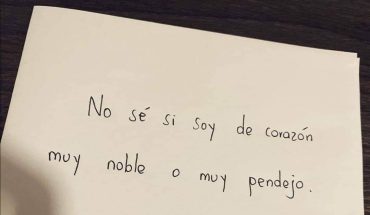 No sé si soy de corazón
muy noble o muy pendejo.